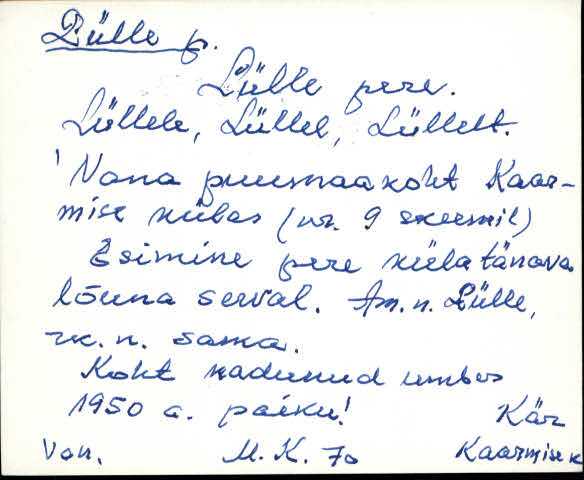 Lülle p.
Lülle pere.
Lüllele, Lüllel, Lüllelt.
Vana puumaakoht Kaar-
mise külas (nr. 9 skeemil)
Esimine pere külatänava
lõuna serval. Am. n. Lülle,
rk. n. sama.
Koht kadunud umbes
1950 a. paiku! Kär
Van. M. K. 70 Kaarmise k